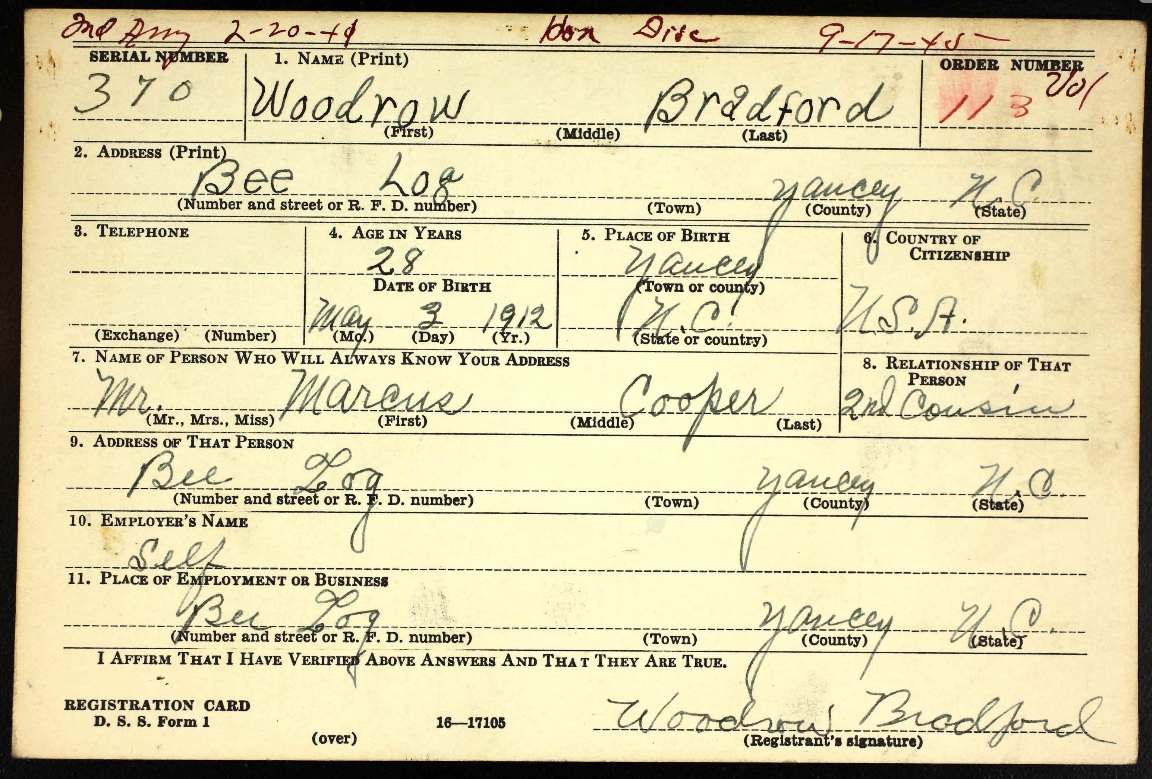 2nd Army 2-20-41 Hon Disc 9-17-45
SERIAL NUMBER 1. NAME (Print) ORDER NUMBER
370 Woodrow Bradford 113 Vol
(First) (Middle) (Last)
2. ADDRESS (Print)
Bee Log Yancey N.C.
(Number and street or R. F. D. number) (Town) (County) (State)
3. TELEPHONE 4. AGE IN YEARS 5. PLACE OF BIRTH 6. COUNTRY OF CITIZENSHIP
28 Yancey
DATE OF BIRTH (Town or county)
May 3 1912 N.C. U.S.A.
(Exchange) (Number) (Mo.) (Day) (Yr.) (State or country)
7. NAME OF PERSON WHO WILL ALWAYS KNOW YOUR ADDRESS 8. RELATIONSHIP OF THAT PERSON
Mr. Marcus Cooper 2nd Cousin
(Mr., Mrs., Miss) (First) (Middle) (Last)
9. ADDRESS OF THAT PERSON
Bee Log Yancey N.C
(Number and street or R. F. D. number) (Town) (County) (State)
10. EMPLOYER'S NAME
Self
11. PLACE OF EMPLOYMENT OR BUSINESS
Bee Log Yancey N.C.
(Number and street or R. F. D. number) (Town) (County) (State)
I AFFIRM THAT I HAVE VERIFIED ABOVE ANSWERS AND THAT THEY ARE TRUE.
REGISTRATION CARD
D. S. S. Form 1 16—17105 Woodrow Bradford
(over) (Registrant's signature)